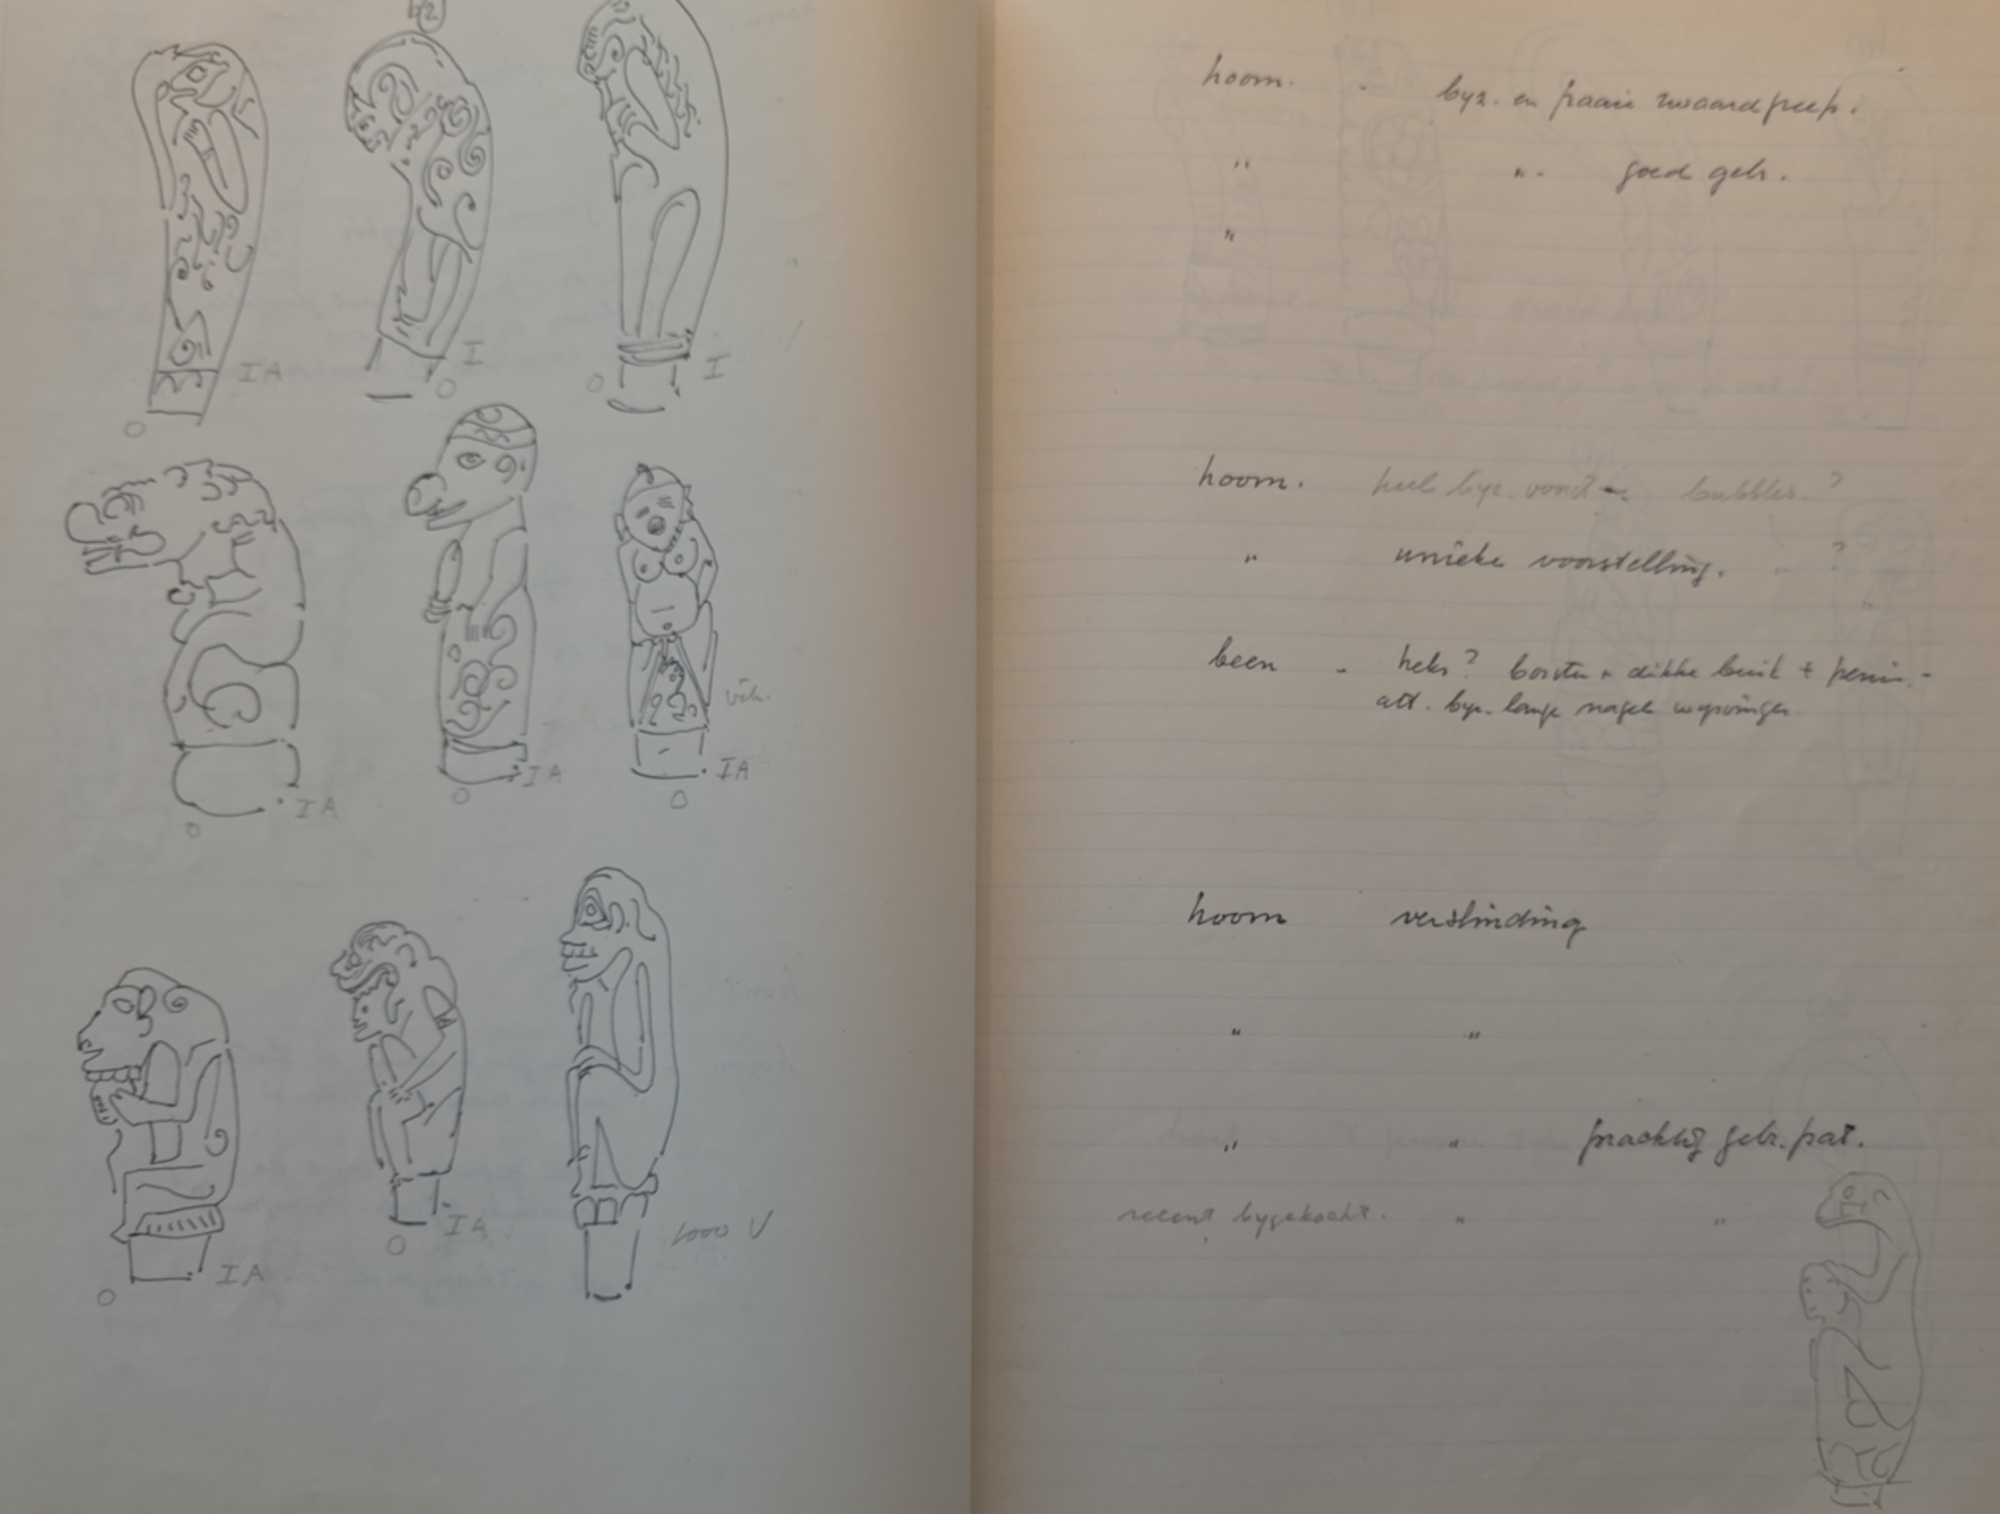 b2
IA
I
I
IA
IA
vch.
IA
IA
IA
1000 V
hoorn. - byz. en fraaie zwaardgreep.
" " - goed gebr.
"
hoorn. heel byz. vondst - bubbles. ?
" unieke voorstelling. " ?
been - heks? borsten + dikke buik + penis. -
att. byz. lange nagel wysvinger
hoorn verslinding
" "
" " prachtig gebr. pat.
recent bygekocht. " "